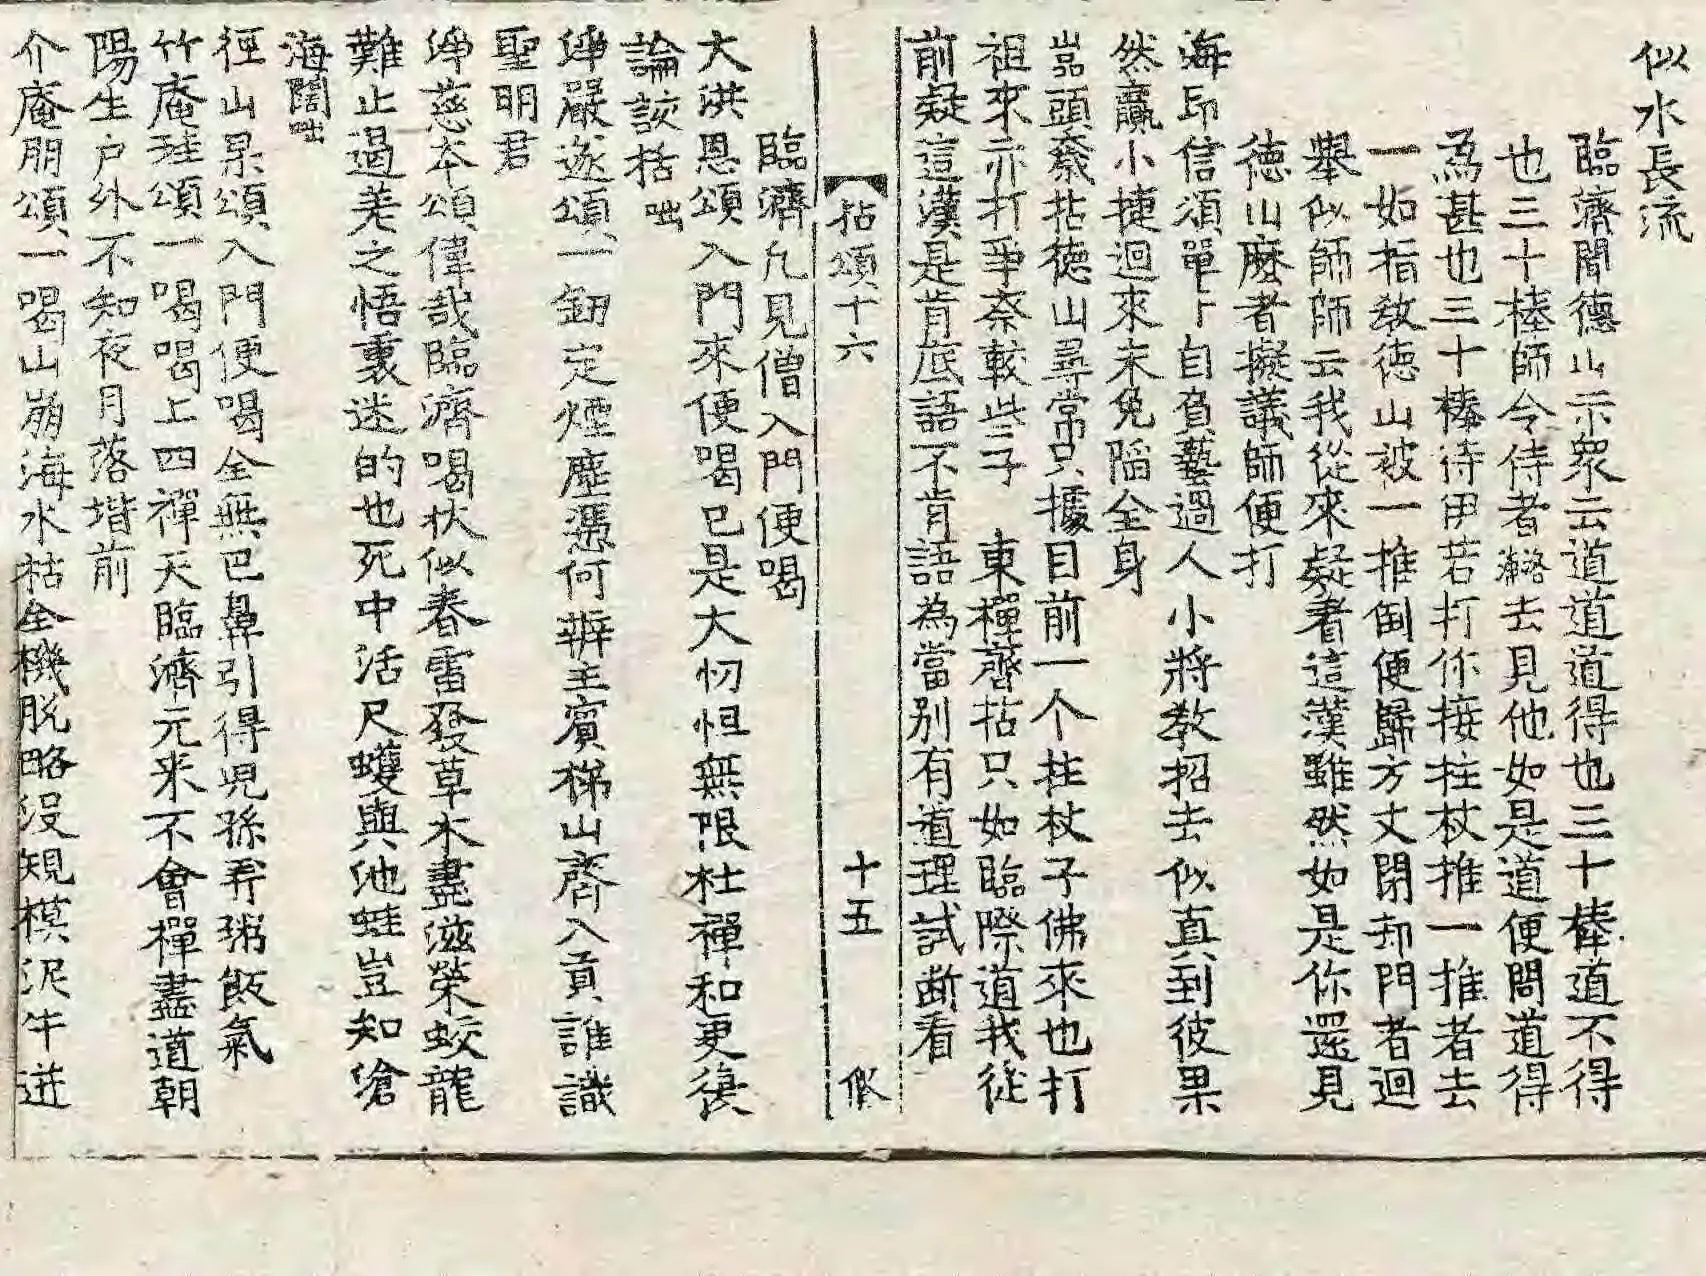 似水長流
臨濟聞德山示眾云道道道得也三十棒道不得
也三十棒師令侍者潞去見他如是道便問道得
為甚也三十棒待伊若打你接拄杖推一推者去
一如指教德山被一推倒便歸方丈閉却門者迴
舉似師師云我從來疑著這漢雖然如是你還見
德山麽者擬議師便打
海印信頌單卜自負藝過人小將教招去似真到彼果
然贏小捷迴來未免陷全身
嵓頭奯拈德山尋常只據目前一个拄杖子佛來也打
祖來亦打爭奈較些子 東禪齊拈只如臨際道我從
前疑這漢是肯底語不肯語為當別有道理試断看
拈頌十六 十五 修
臨濟凡見僧入門便喝
大洪恩頌入門來便喝已是大忉怛無限杜禪和更復
論該括咄
淨嚴遂頌一劒定煙塵憑何辨主賓梯山齎入貢誰識
聖明君
淨慈本頌偉哉臨濟喝状似春雷發草木盡滋榮蛟龍
難止遏羌之悟裏迷的也死中活尺蠖與池蛙豈知滄
海闊咄
徑山杲頌入門便喝全無巴鼻引得兒孫弄粥飯氣
竹庵珪頌一喝喝上四禪天臨濟元来不會禪盡道朝
陽生户外不知夜月落堦前
介庵朋頌一喝山崩海水枯全機脱略没規模泥牛迸